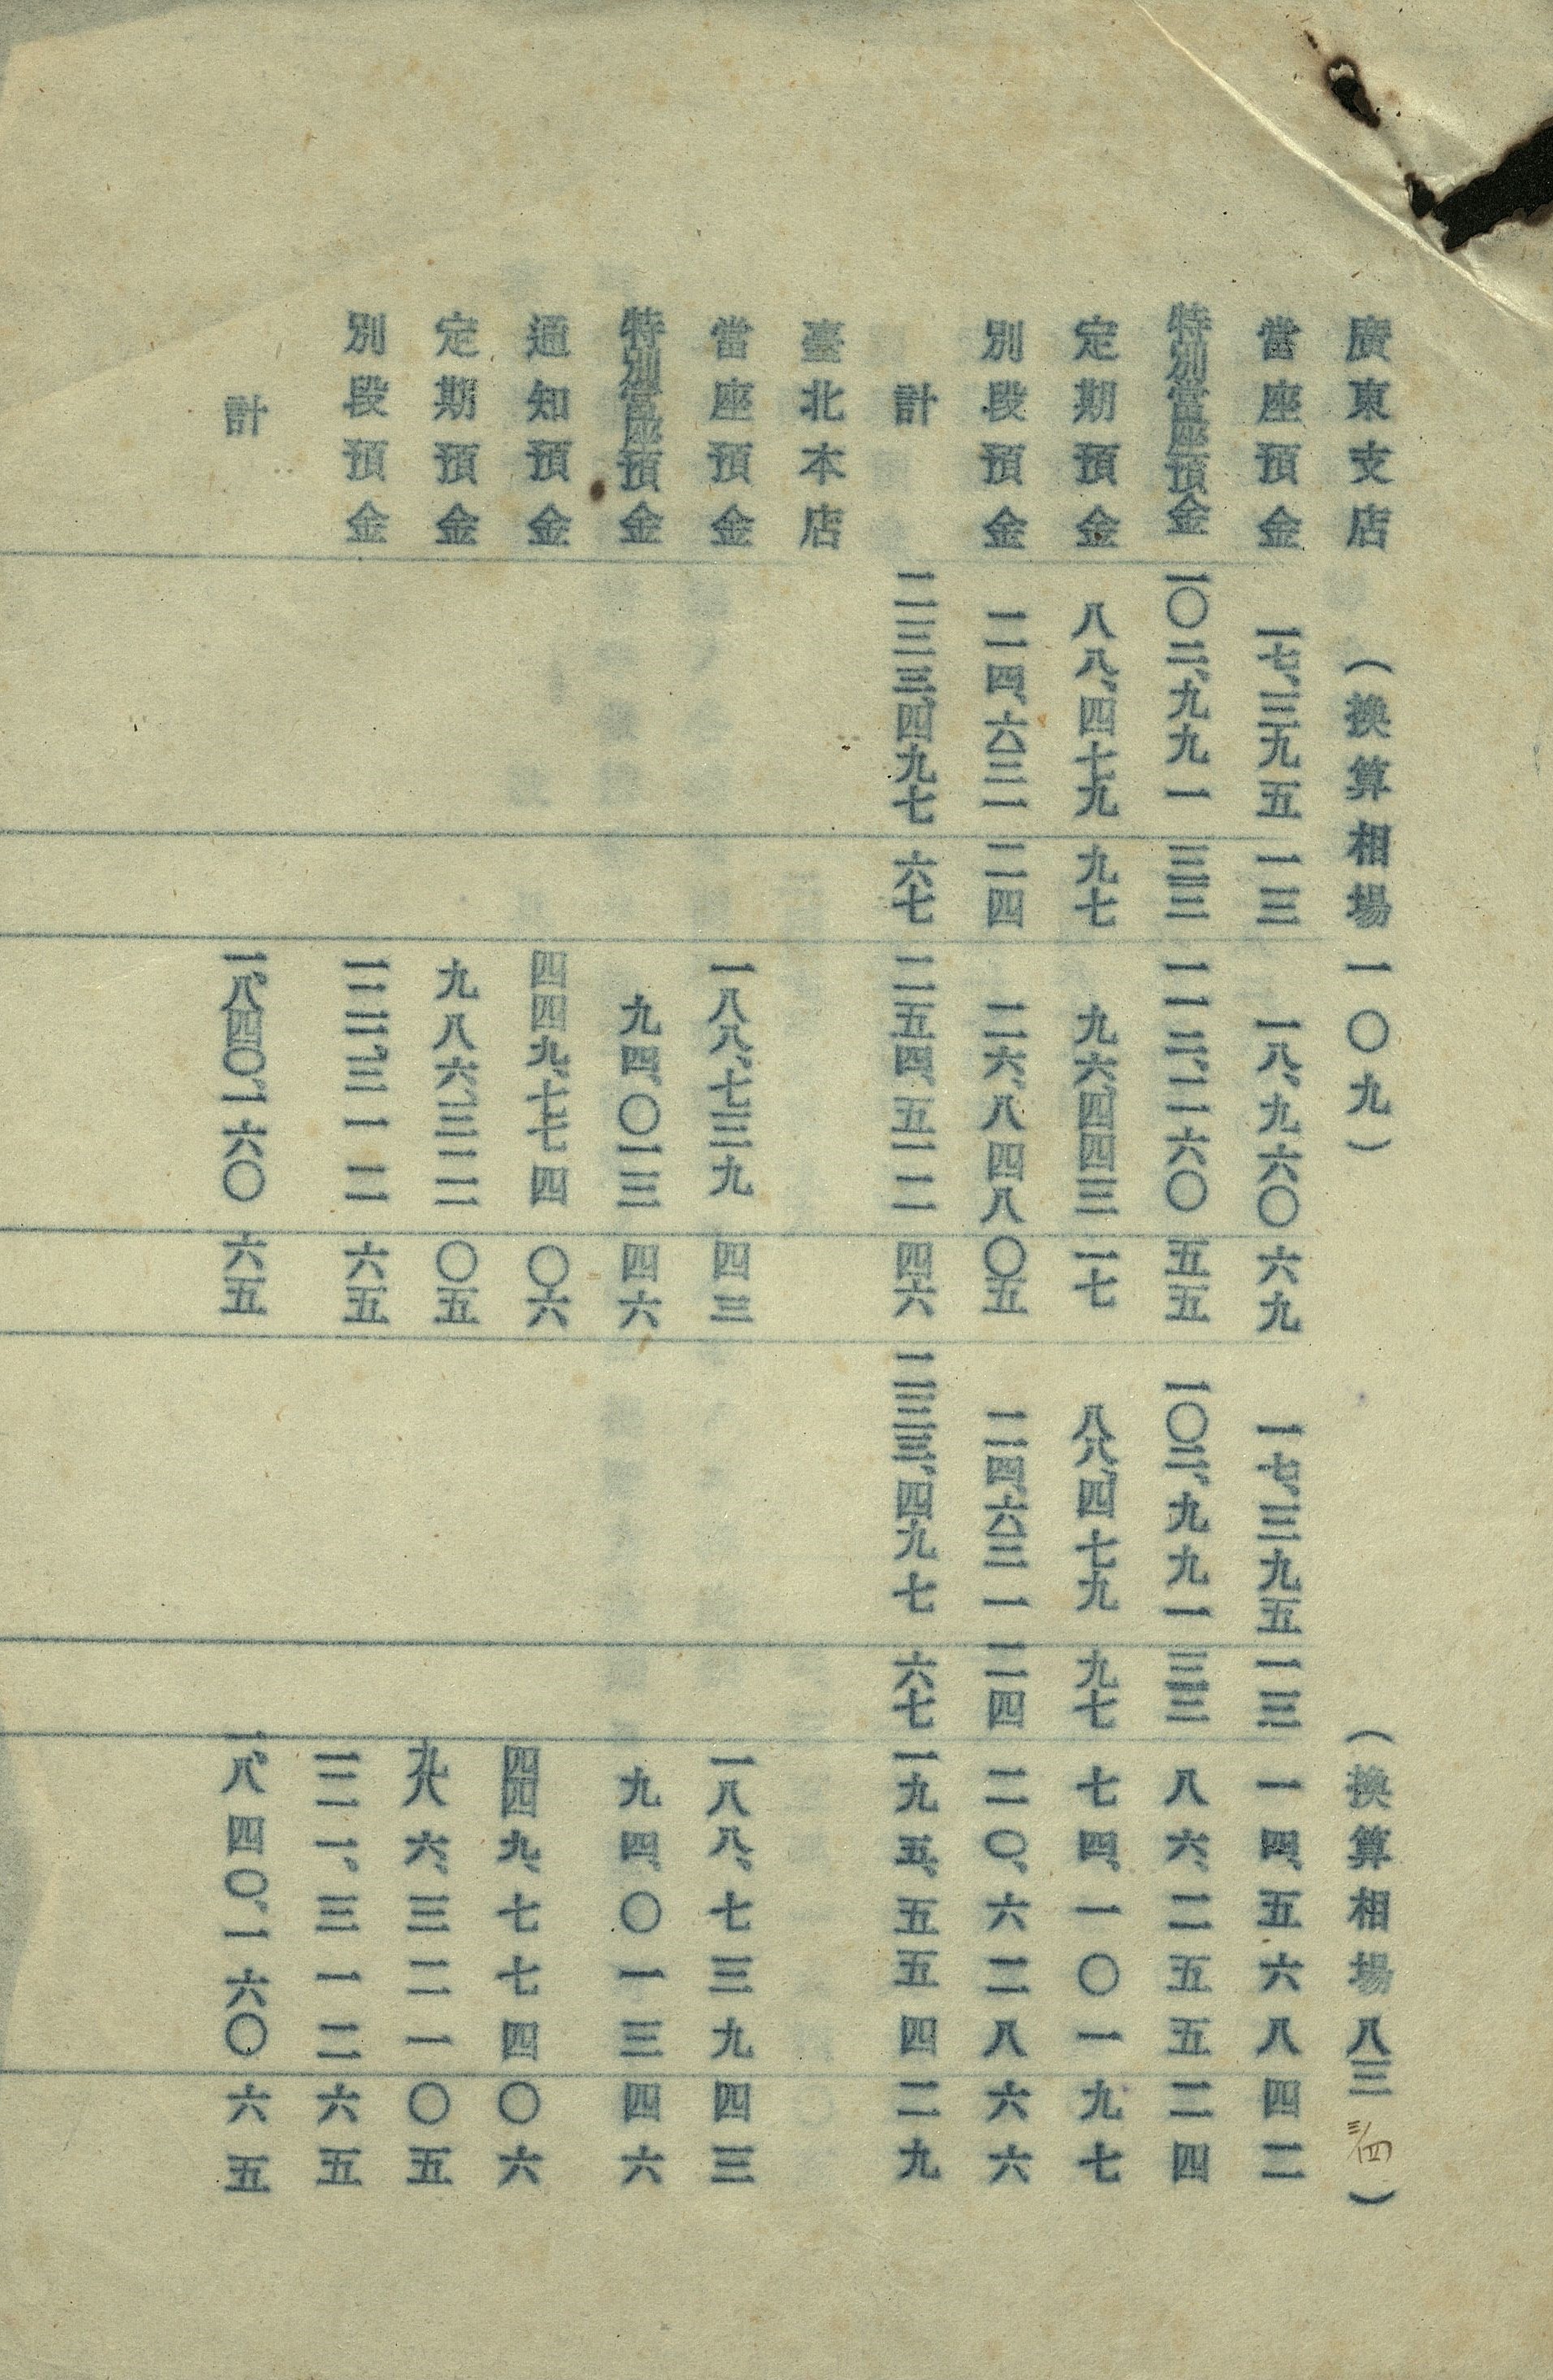 廣東支店 （換算相場一〇九） （換算相場八三 三/四）
當座預金 一七、三九五 一三 一八、九六〇 六九 一七、三九五 一三 一四、五六八 四二
特別當座預金 一〇二、九九一 三三 一一二、二六〇 五五 一〇二、九九一 三三 八六、二五五 二四
定期預金 八八、四七九 九七 九六、四四三 一七 八八、四七九 九七 七四、一〇一 九七
別段預金 二四、六三一 二四 二六、八四八 〇五 二四、六三一 二四 二〇、六二八 六六
計 二三三、四九七 六七 二五四、五一二 四六 二三三、四九七 六七 一九五、五五四 二九
臺北本店
當座預金 一八八、七三九 四三 一八八、七三九 四三
特別當座預金 九四、〇一三 四六 九四、〇一三 四六
通知預金 四四九、七七四 〇六 四四九、七七四 〇六
定期預金 九八六、三二一 〇五 九八六、三二一 〇五
別段預金 一二一、三一二 六五 一二一、三一二 六五
計 一、八四〇、一六〇 六五 一、八四〇、一六〇 六五